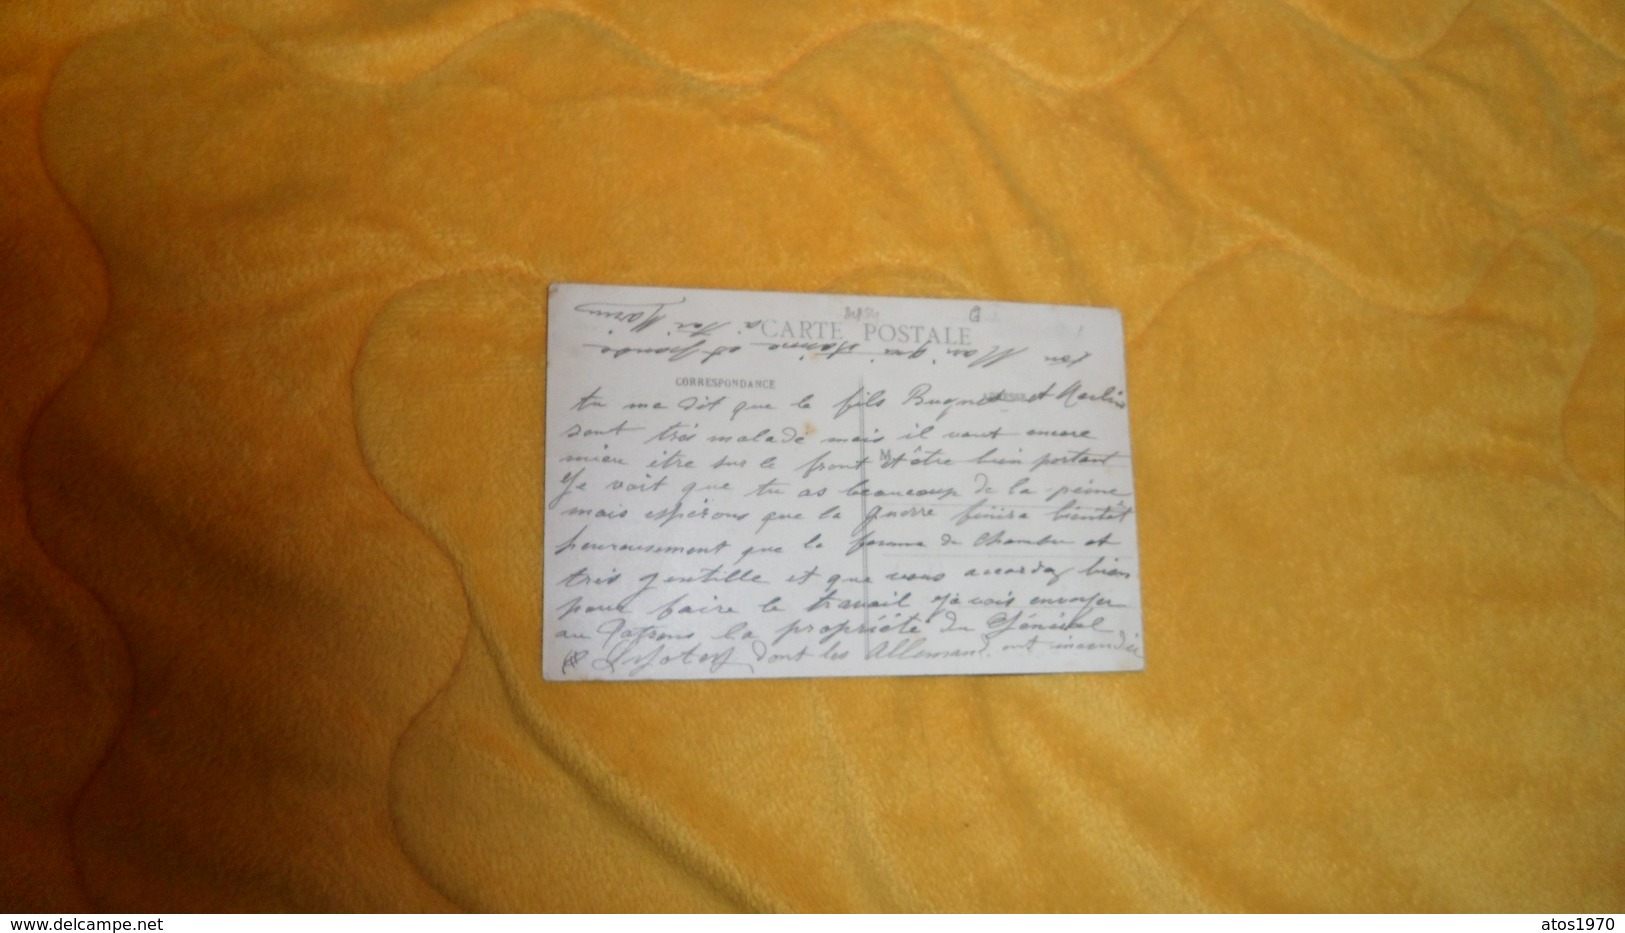 CARTE POSTALE
CORRESPONDANCE
tu me dit que le fils Bugnet et
sont très malade mais il vaut encore
mieu être sur le front et être bien portant
M
Je voit que tu as beaucoup de la peine
mais espérons que la guerre finira bientôt
heureusement que la femme de Chambre et
très gentille et que vous accordez bien
pour faire le travail Je vais envoyer
au Patrons la propriété du Général
dont les Allemand ont incendié
ton Mari qui t'aime et pense
à toi Marius
delcampe.net
atos1970